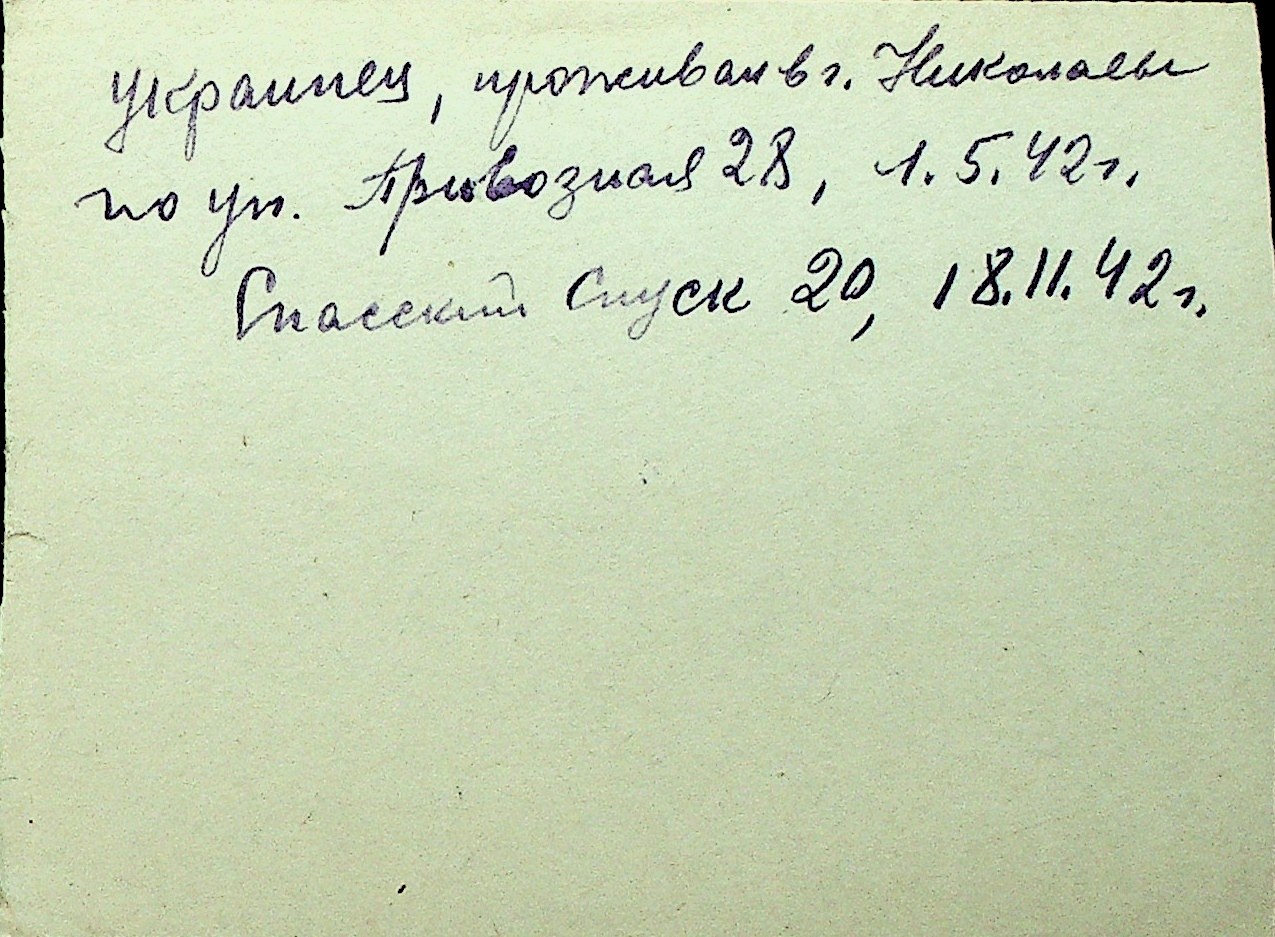 украинец, проживал в г. Николаеве
по ул. Привозная 28, 1.5.42г.
Спасский Спуск 20, 18.11.42г.